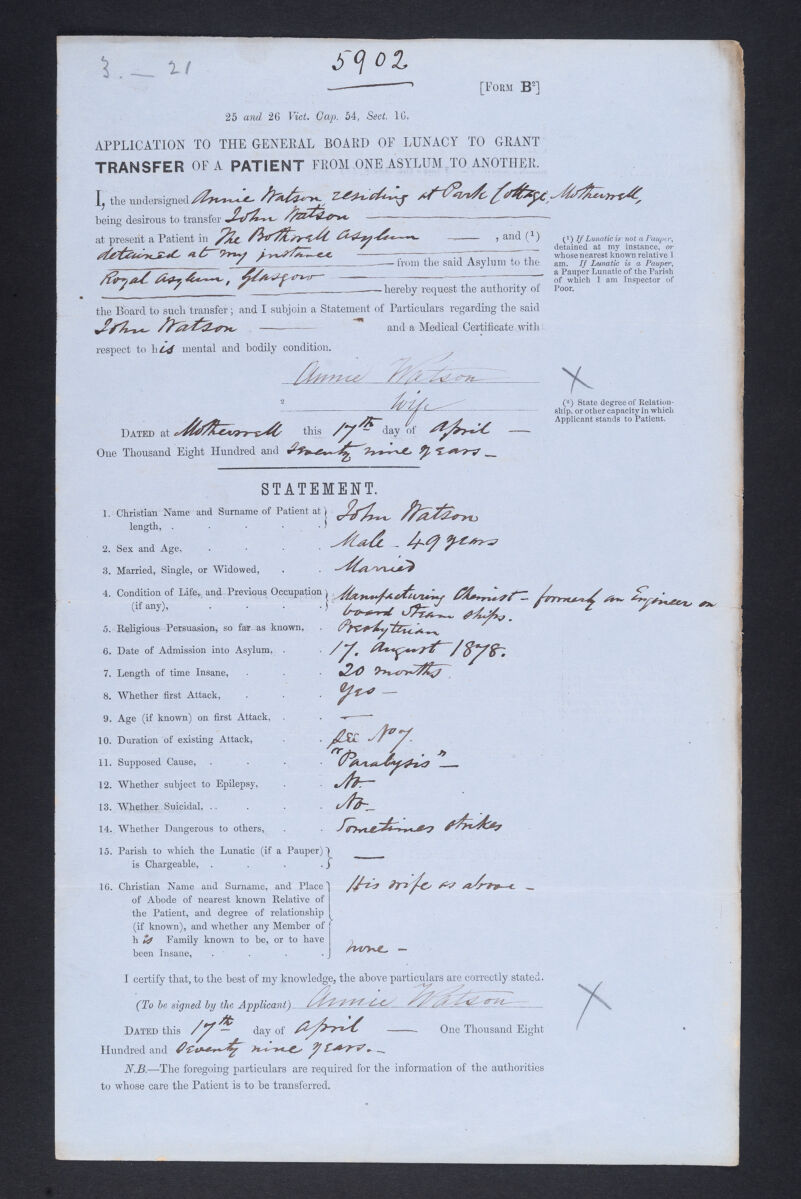 3. — 21
5902
[FORM B²]
25 and 26 Vict. Cap. 54, Sect. 16.
APPLICATION TO THE GENERAL BOARD OF LUNACY TO GRANT
TRANSFER OF A PATIENT FROM ONE ASYLUM TO ANOTHER.
I, the undersigned Annie Watson, residing at Park Cottage, Motherwell,
being desirous to transfer John Watson
at present a Patient in The Bothwell Asylum — , and (¹)
detained at my instance
— from the said Asylum to the
Royal Asylum, Glasgow
— hereby request the authority of
the Board to such transfer; and I subjoin a Statement of Particulars regarding the said
John Watson — and a Medical Certificate with
respect to his mental and bodily condition.
(¹) If Lunatic is not a Pauper,
detained at my instance, or
whose nearest known relative I
am. If Lunatic is a Pauper,
a Pauper Lunatic of the Parish
of which I am Inspector of
Poor.
Annie Watson
² Wife
(²) State degree of Relation-
ship, or other capacity in which
Applicant stands to Patient.
DATED at Motherwell this 17th day of April —
One Thousand Eight Hundred and Seventy nine years —
STATEMENT.
1. Christian Name and Surname of Patient at length, . . . . . John Watson
2. Sex and Age, . . . . Male - 49 years
3. Married, Single, or Widowed, . . Married
4. Condition of Life, and Previous Occupation (if any), . . . . Manufacturing Chemist - formerly an Engineer on
board Steam ships.
5. Religious Persuasion, so far as known, . Presbyterian
6. Date of Admission into Asylum, . . 17. August 1878.
7. Length of time Insane, . . . 20 months.
8. Whether first Attack, . . . Yes —
9. Age (if known) on first Attack, . . —
10. Duration of existing Attack, . . See No 7.
11. Supposed Cause, . . . . "Paralysis" —
12. Whether subject to Epilepsy, . . No.
13. Whether Suicidal, . . . . No —
14. Whether Dangerous to others, . . Sometimes strikes
15. Parish to which the Lunatic (if a Pauper)
is Chargeable, . . . . . —
16. Christian Name and Surname, and Place His wife as above —
of Abode of nearest known Relative of
the Patient, and degree of relationship
(if known), and whether any Member of
his Family known to be, or to have
been Insane, . . . . none —
I certify that, to the best of my knowledge, the above particulars are correctly stated.
(To be signed by the Applicant) Annie Watson
DATED this 17th day of April — One Thousand Eight
Hundred and Seventy nine years. —
N.B.—The foregoing particulars are required for the information of the authorities
to whose care the Patient is to be transferred.